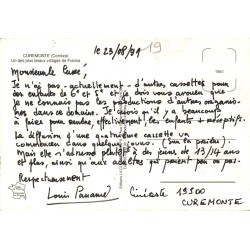 CUREMONTE (Corrèze)
Un des plus beaux villages de France
le 23/08/91
19
Monsieur le Curé!
Je n'ai pas actuellement d'autres cassettes pour
des enfants de 6e et 5e et je dois vous avouer que
je ne connais pas les productions d'autres organis-
mes dans ce domaine. Je crois qu'il y a beaucoup
à faire pour eux, effectivement les enfants réceptifs.
La diffusion d'une quatrième cassette va
commencer dans quelques jours. (Sur la paix)
Mais elle s'adresse plutôt à des jeunes de 13/14 ans
et plus, ainsi qu'aux adultes qui peuvent
Respectueusement
Louis
Cinéaste 19500
CUREMONTE